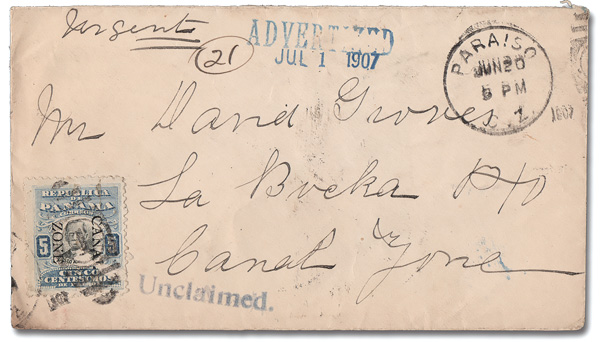 Urgent
(21)
ADVERTIZED
JUL 1 1907
PARAISO
JUN 20
5 PM
C. Z.
1907
Mr David Groves
La Bocka P/O
Canal Zone
REPUBLICA
DE
PANAMA
5 CANAL ZONE 5
CINCO
CENTESIMOS
Unclaimed.